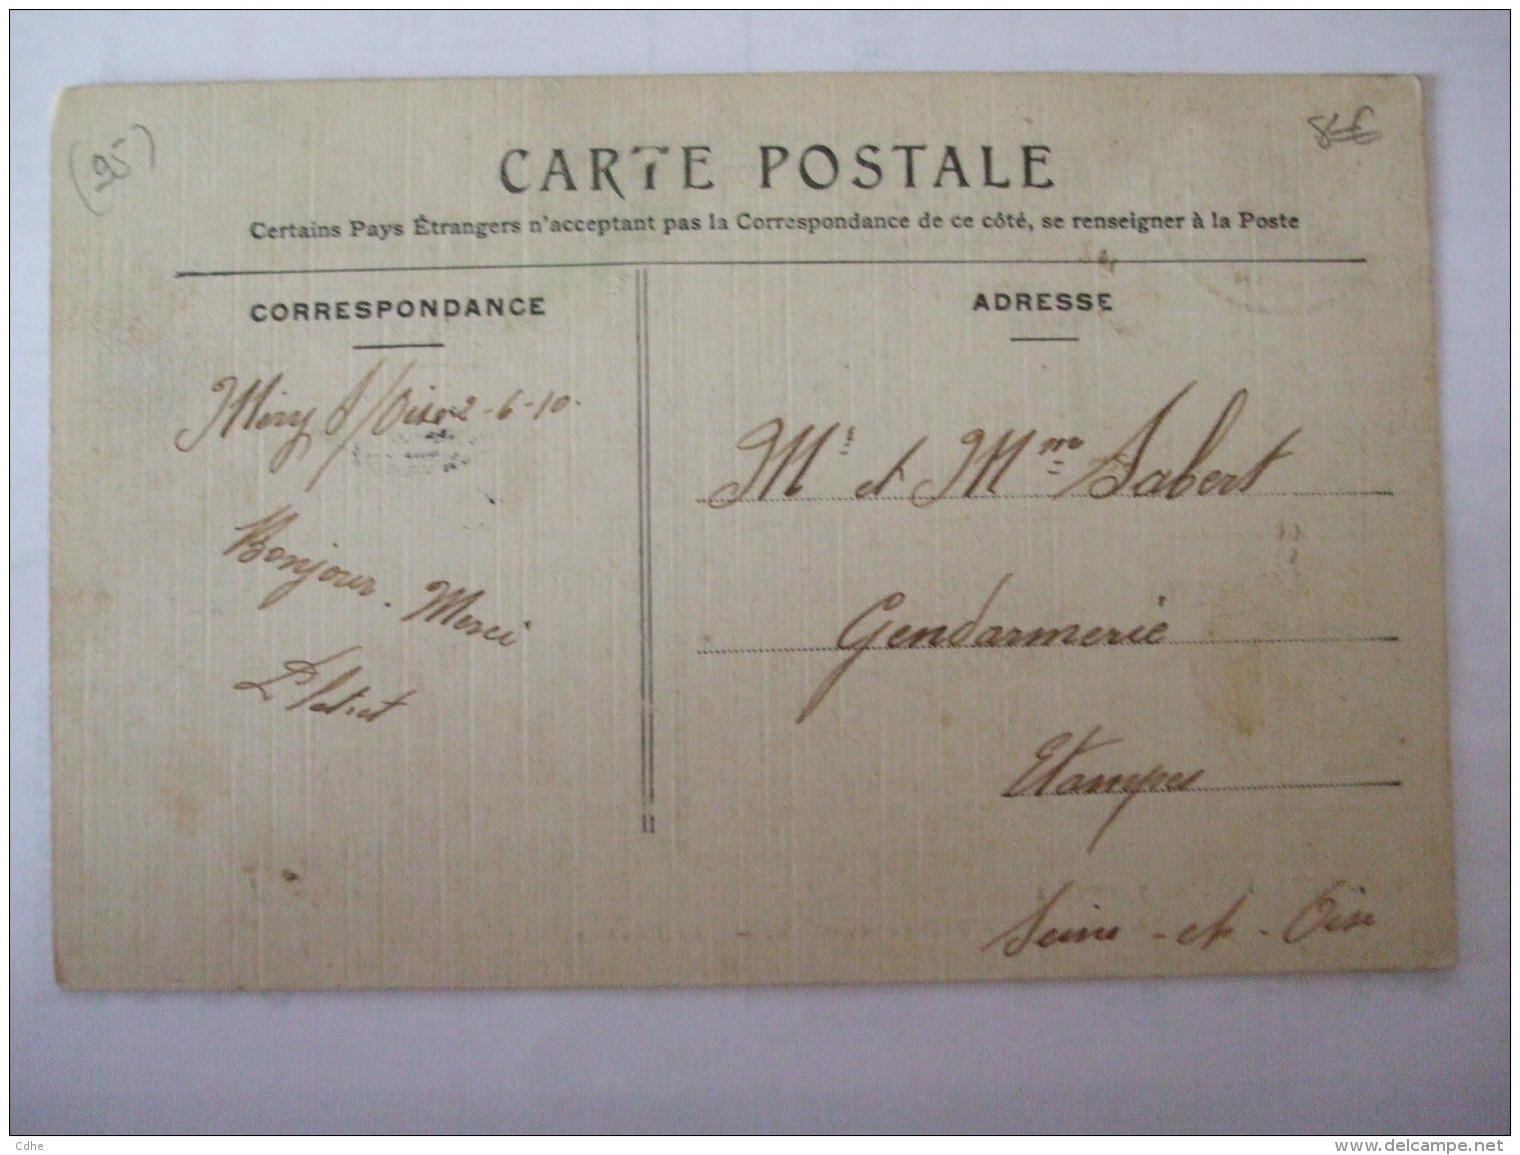 (95)
CARTE POSTALE
Certains Pays Étrangers n'acceptant pas la Correspondance de ce côté, se renseigner à la Poste
CORRESPONDANCE
Méry s/Oise 2-6-10.
Bonjour. Merci
ADRESSE
Mr et Mme Sabert
Gendarmerie
Etampes
Seine-et-Oise
Cdhe
www.delcampe.net